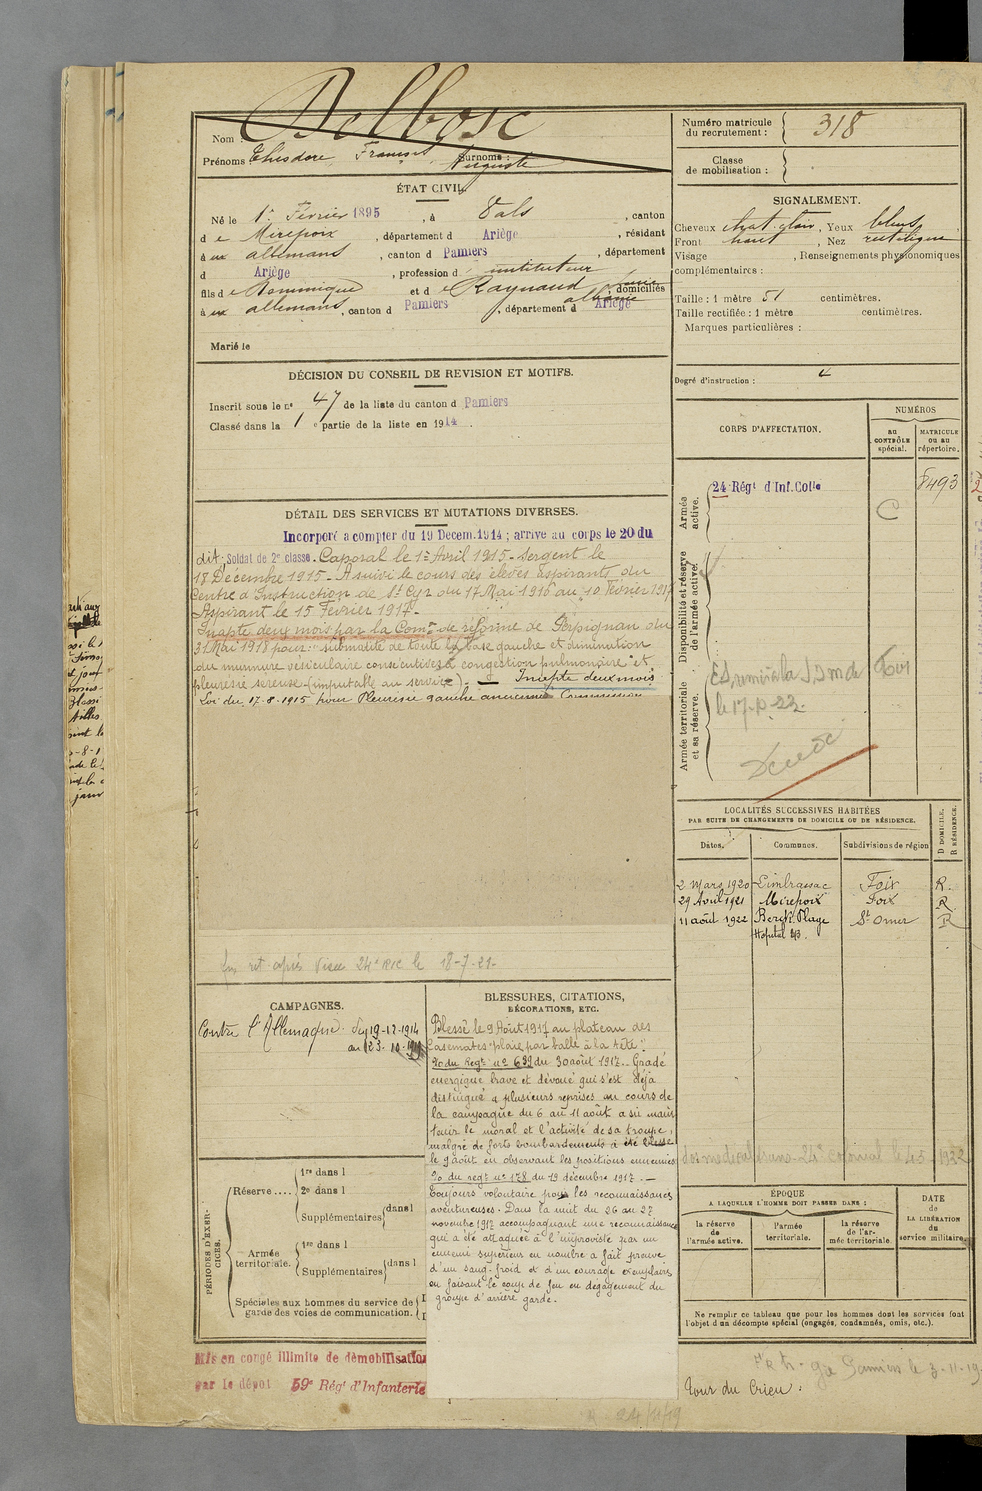 Delbosc
Nom :
Prénoms : Théodore François Auguste
Surnoms :
ÉTAT CIVIL.
Né le 1er Février 1895, à Vals, canton
de Mirepoix, département d Ariège, résidant
à ux allemans, canton d Pamiers, département
d Ariège, profession d instituteur
fils de Dominique et de Raynaud domiciliés
à ux allemans, canton d Pamiers, département d Ariège
Marié le
DÉCISION DU CONSEIL DE REVISION ET MOTIFS.
Inscrit sous le n° 47 de la liste du canton d Pamiers
Classé dans la 1e partie de la liste en 1914.
DÉTAIL DES SERVICES ET MUTATIONS DIVERSES.
Incorporé à compter du 19 Decem.1914 ; arrivé au corps le 20 du
dit, Soldat de 2e classe. Caporal le 1er Avril 1915 - Sergent le
18 Décembre 1915 - A suivi le cours des élèves aspirants du
Centre d'Instruction de St Cyr du 17 Mai 1916 au 10 Février 1917
Aspirant le 15 Février 1917.
Inapte deux mois par la Comon de réforme de Perpignan du
31 Mai 1918 pour : submatité de toute la base gauche et diminution
du murmure vésiculaire consécutives à congestion pulmonaire et
pleurésie séreuse - (imputable au service). — Inapte deux mois
Loi du 17-8-1915 pour Pleurésie gauche ancienne Commission
24e RIC le 18-7-21-
CAMPAGNES.
Contre l'Allemagne. du 19-12-1914
au 23-10-1919
BLESSURES, CITATIONS,
DÉCORATIONS, ETC.
Blessé le 9 Août 1917 au plateau des
Casemates plaie par balle à la tête.
O. du Regt n° 639 du 30 août 1917 - Gradé
énergique brave et dévoué qui s'est déjà
distingué à plusieurs reprises au cours de
la campagne du 6 au 11 août a su main
tenir le moral et l'activité de sa troupe,
malgré de forts bombardements a été blessé
le 9 août en observant les positions ennemies
O. du regt n° 178 du 19 décembre 1917. —
Toujours volontaire pour les reconnaissances
aventureuses. Dans la nuit du 26 au 27
novembre 1917 accompagnant une reconnaissance
qui a été attaquée à l'improviste par un
ennemi supérieur en nombre a fait preuve
d'un sang-froid et d'un courage exemplaires
en faisant le coup de feu en dégagement du
groupe d'arrière garde.
PÉRIODES D'EXERCICES.
Réserve....
1re dans l
2e dans l
Supplémentaires
dans l
Armée territoriale.
1re dans l
Supplémentaires
dans l
Spéciales aux hommes du service de
garde des voies de communication.
Mis en congé illimité de démobilisation
par le dépôt 59e Régt d'Infanterie
Numéro matricule
du recrutement : 318
Classe
de mobilisation :
SIGNALEMENT.
Cheveux chat. clair, Yeux bleus,
Front haut, Nez rectiligne
Visage , Renseignements physionomiques
complémentaires :
Taille : 1 mètre 51 centimètres.
Taille rectifiée : 1 mètre centimètres.
Marques particulières :
Degré d'instruction : 4
CORPS D'AFFECTATION.
NUMÉROS
au CONTRÔLE spécial.
MATRICULE ou au répertoire.
Armée active.
24 Régt d'Inf.Colle
C
8493
Disponibilité et réserve de l'armée active.
Armée territoriale et sa réserve.
le 17-10-23
LOCALITÉS SUCCESSIVES HABITÉES
PAR SUITE DE CHANGEMENTS DE DOMICILE OU DE RÉSIDENCE.
Dates. Communes. Subdivisions de région
D DOMICILE. R RÉSIDENCE.
2 Mars 1920 Limbrassac Foix R.
29 Avril 1921 Mirepoix Foix R
11 août 1922 Berck Plage St Omer R
Hopital
ÉPOQUE
A LAQUELLE L'HOMME DOIT PASSER DANS :
la réserve de l'armée active.
l'armée territoriale.
la réserve de l'armée territoriale.
DATE de LA LIBÉRATION du service militaire.
Ne remplir ce tableau que pour les hommes dont les services font
l'objet d'un décompte spécial (engagés, condamnés, omis, etc.).
Pamiers le 3-11-19
Tour du Crieu.
24/11/19